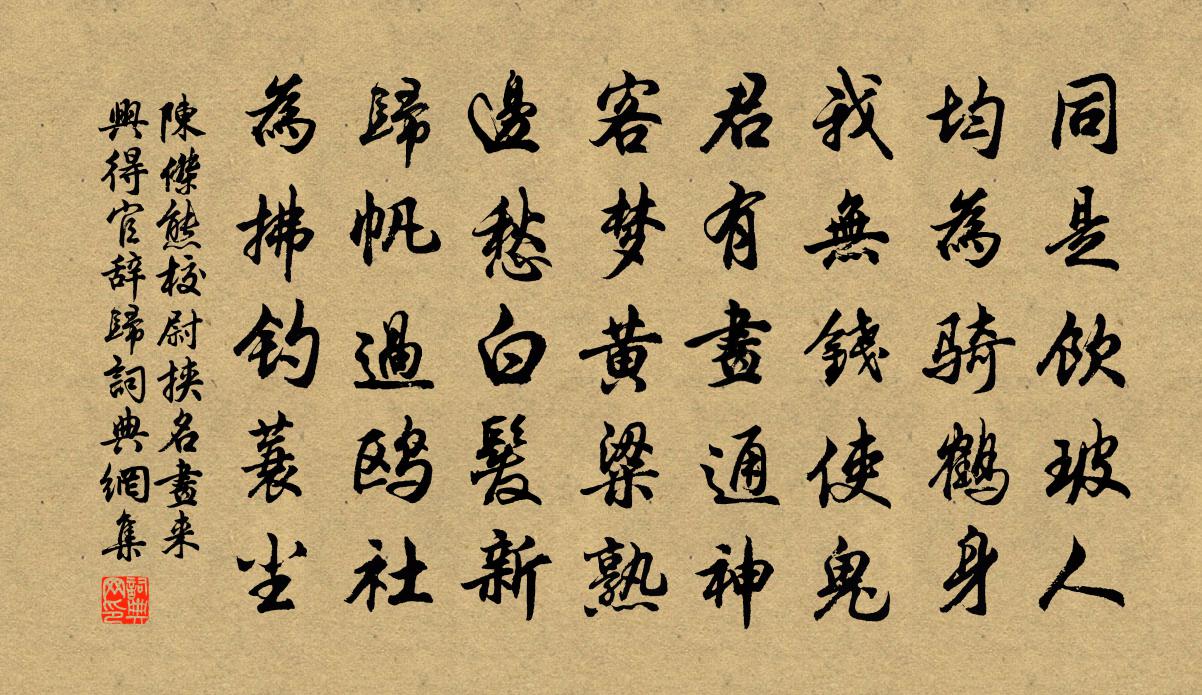 同是饮玻人
均為骑鶴身
我無錢使鬼
君有畫通神
客梦黄粱熟
邊愁白髮新
歸帆過鸥社
為拂钓蓑尘
陳傑熊校尉挟名畫来
興得官辞歸詞典網集
詞典
网印